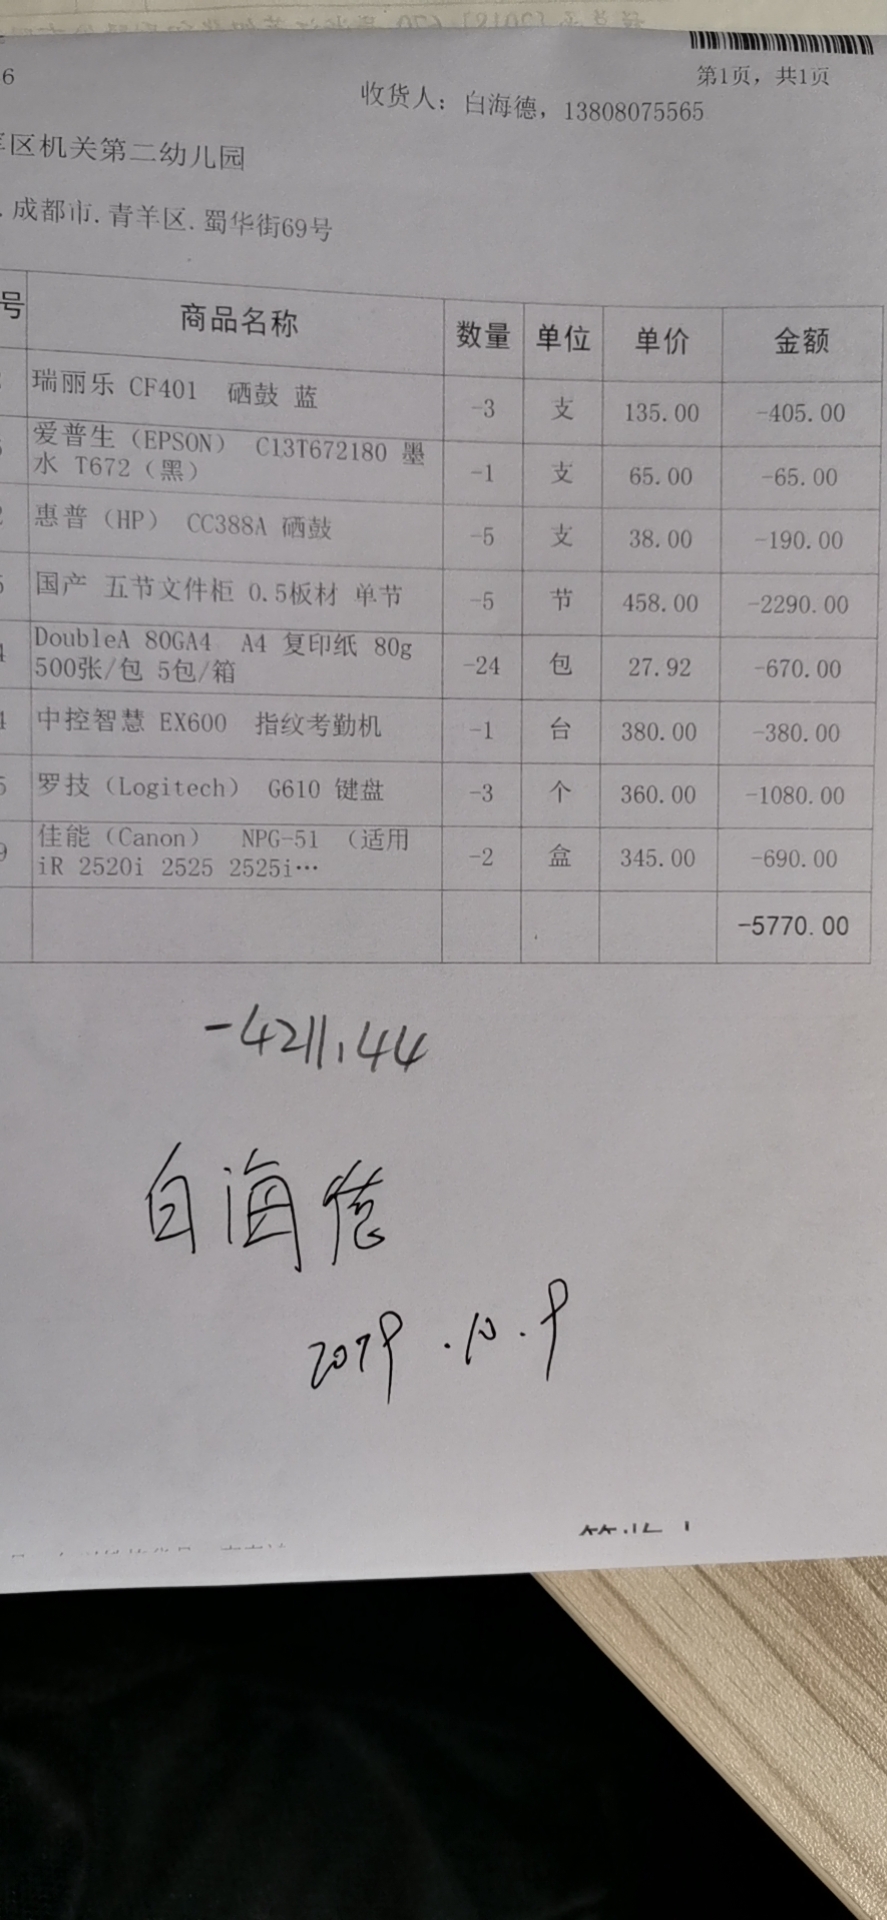 6
第1页，共1页
收货人：白海德，13808075565
区机关第二幼儿园
.成都市.青羊区.蜀华街69号
号 商品名称 数量 单位 单价 金额
瑞丽乐 CF401 硒鼓 蓝 -3 支 135.00 -405.00
爱普生（EPSON） C13T672180 墨
水 T672（黑） -1 支 65.00 -65.00
惠普（HP） CC388A 硒鼓 -5 支 38.00 -190.00
国产 五节文件柜 0.5板材 单节 -5 节 458.00 -2290.00
DoubleA 80GA4 A4 复印纸 80g
500张/包 5包/箱 -24 包 27.92 -670.00
中控智慧 EX600 指纹考勤机 -1 台 380.00 -380.00
罗技（Logitech） G610 键盘 -3 个 360.00 -1080.00
佳能（Canon） NPG-51 （适用
iR 2520i 2525 2525i… -2 盒 345.00 -690.00
-5770.00
-4211.44
白海德
2019.10.9